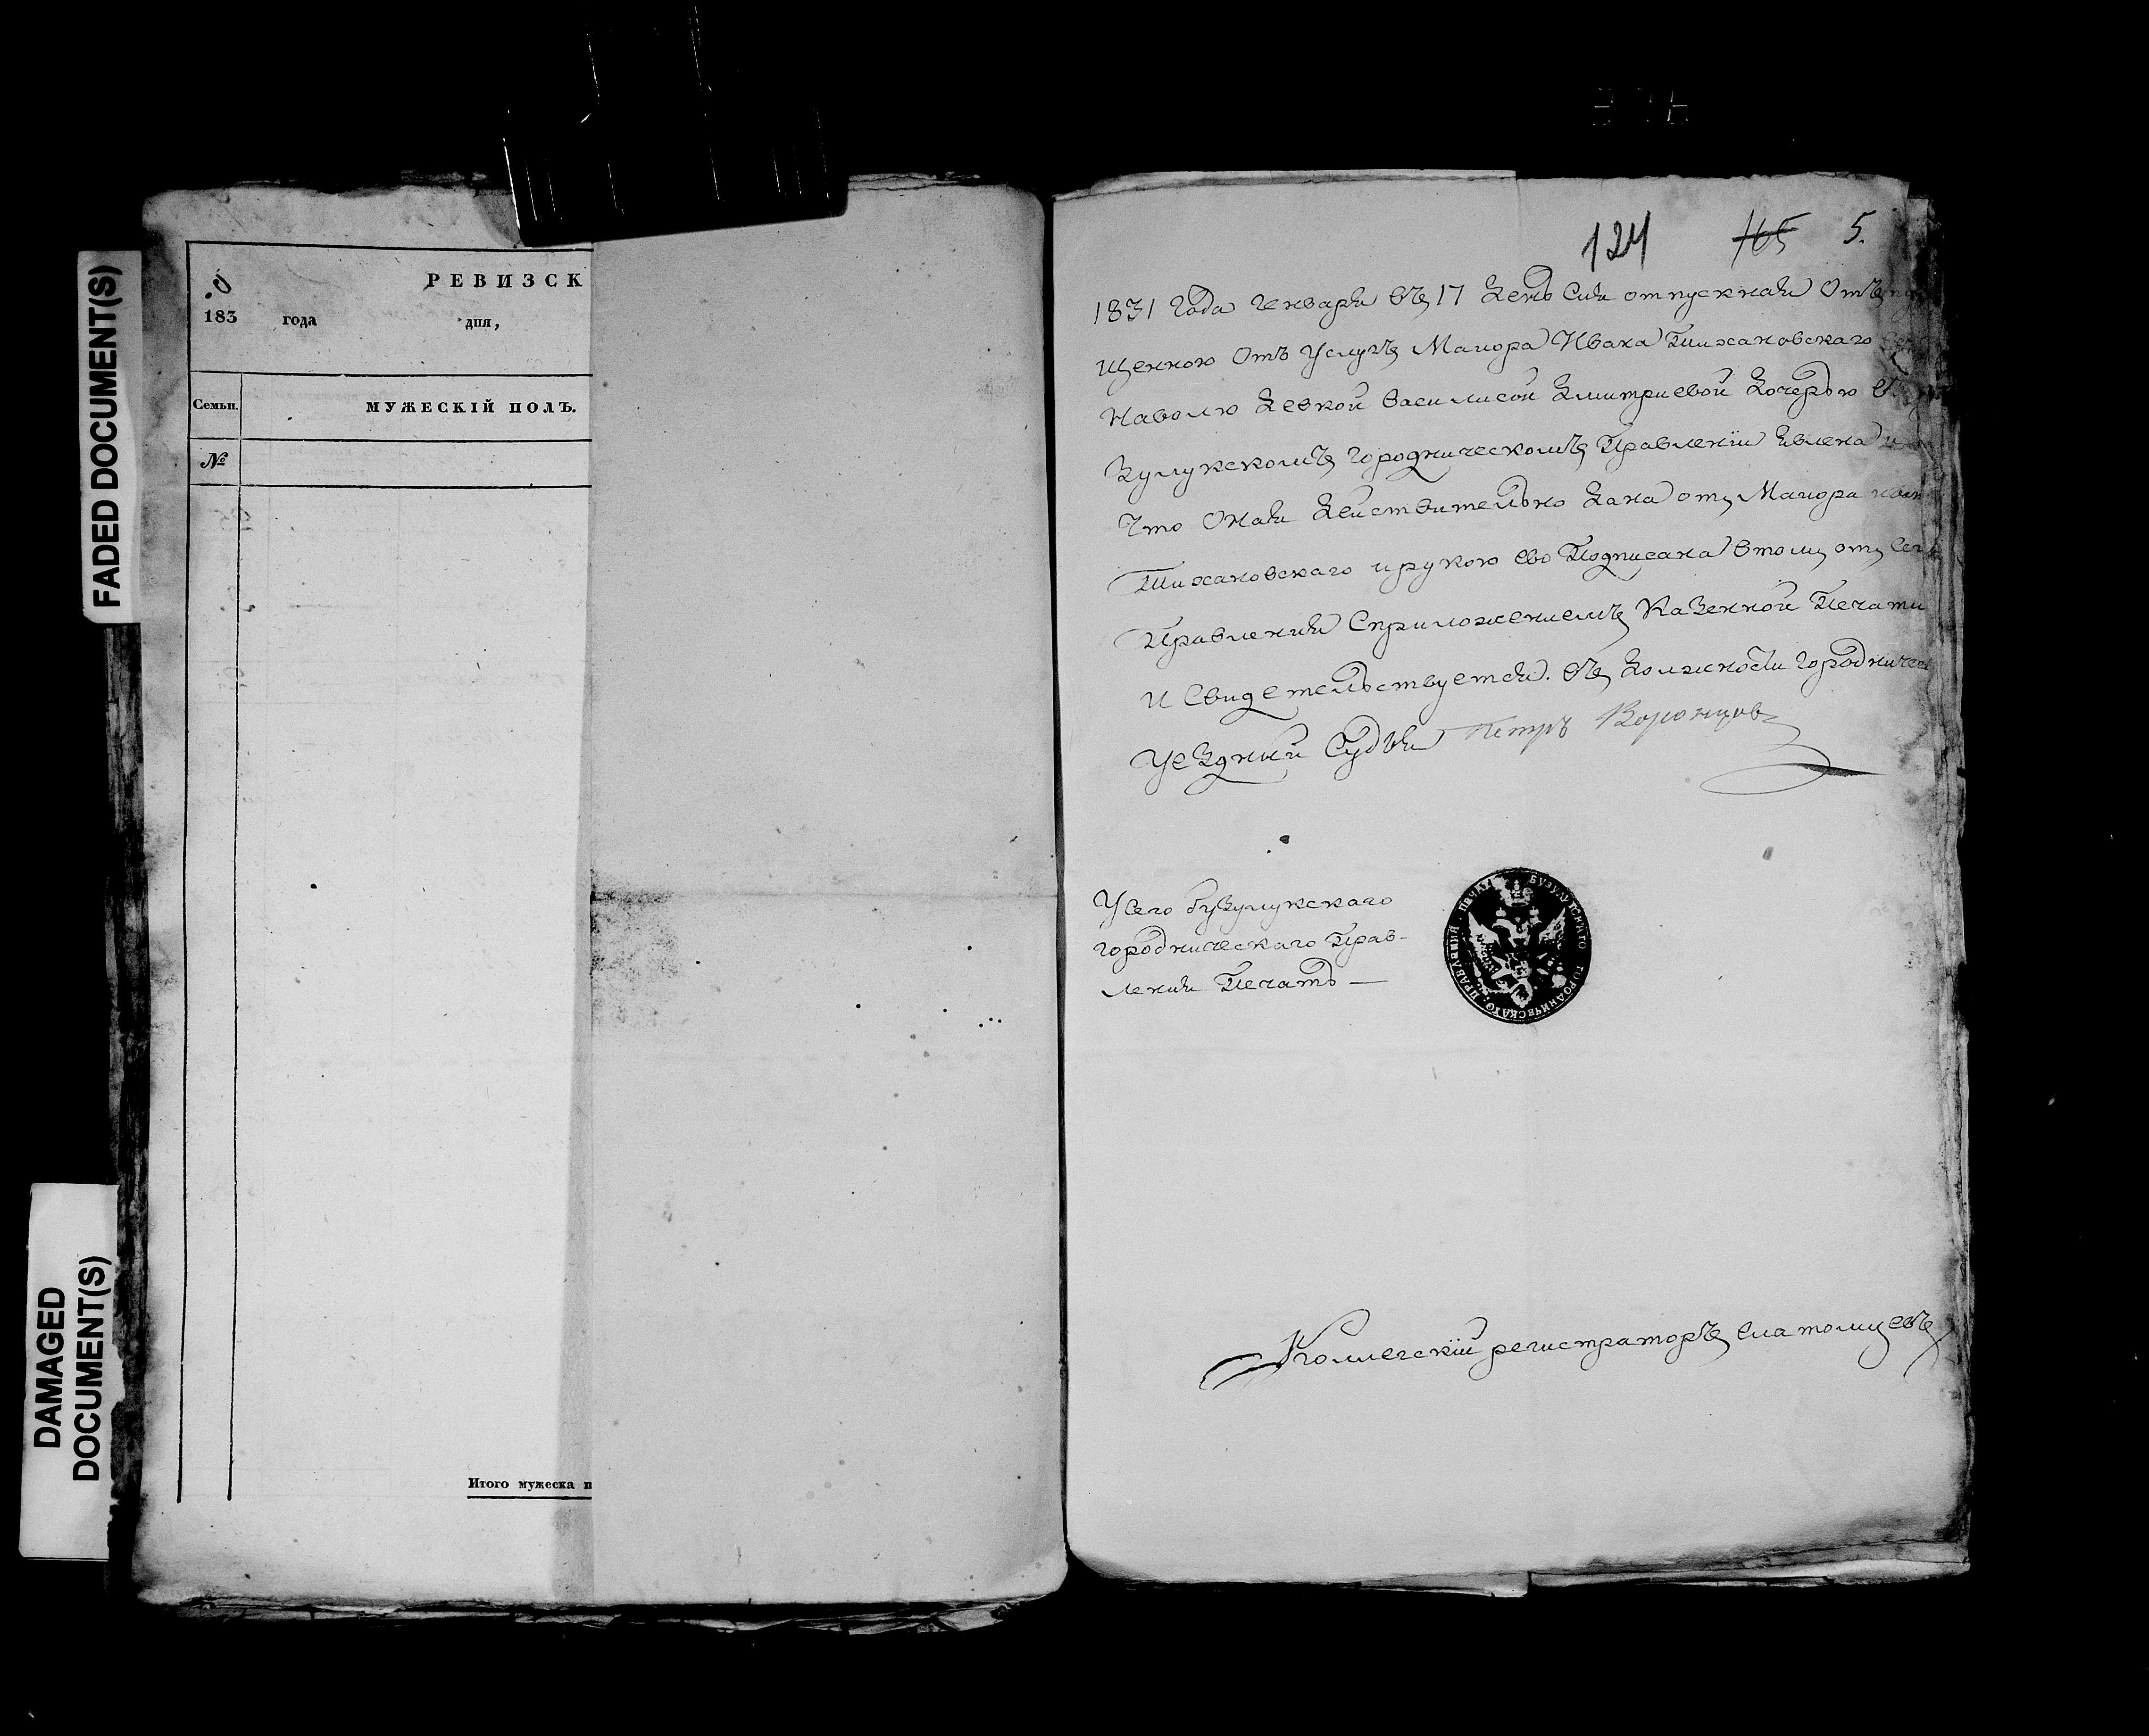 FADED DOCUMENT(S)
DAMAGED
DOCUMENT(S)
РЕВИЗСК
183 года дня,
Семьи.
МУЖЕСКІЙ ПОЛЪ.
№
Итого мужеска п
124 165 5.
1831 Года Генваря въ 17 день Сия отпускная Отъ
щенною Отъ Услугъ Маиора Ивана Тихановскаго
Наволю девкой Василисой Дмитриевой дочерью
Зулукскомъ Городническомъ Правленіи явлена
Что Оная действительно дана отъ Маиора
Тихановскаго ирукою ево Подписана втомъ отъ
Правления Сприложениемъ Казенной Печати
и Свидетельствуется. въ должности Городничего
Уездный Судья Петръ Воронцовъ
У сего бузулукскаго
городническаго Прав-
ления Печать —
ПЕЧАТЬ БУЗУЛУТСКАГО ГОРОДНИЧЕСКАГО ПРАВЛЕНИЯ
Коллегскій регистраторъ Елатомцевъ